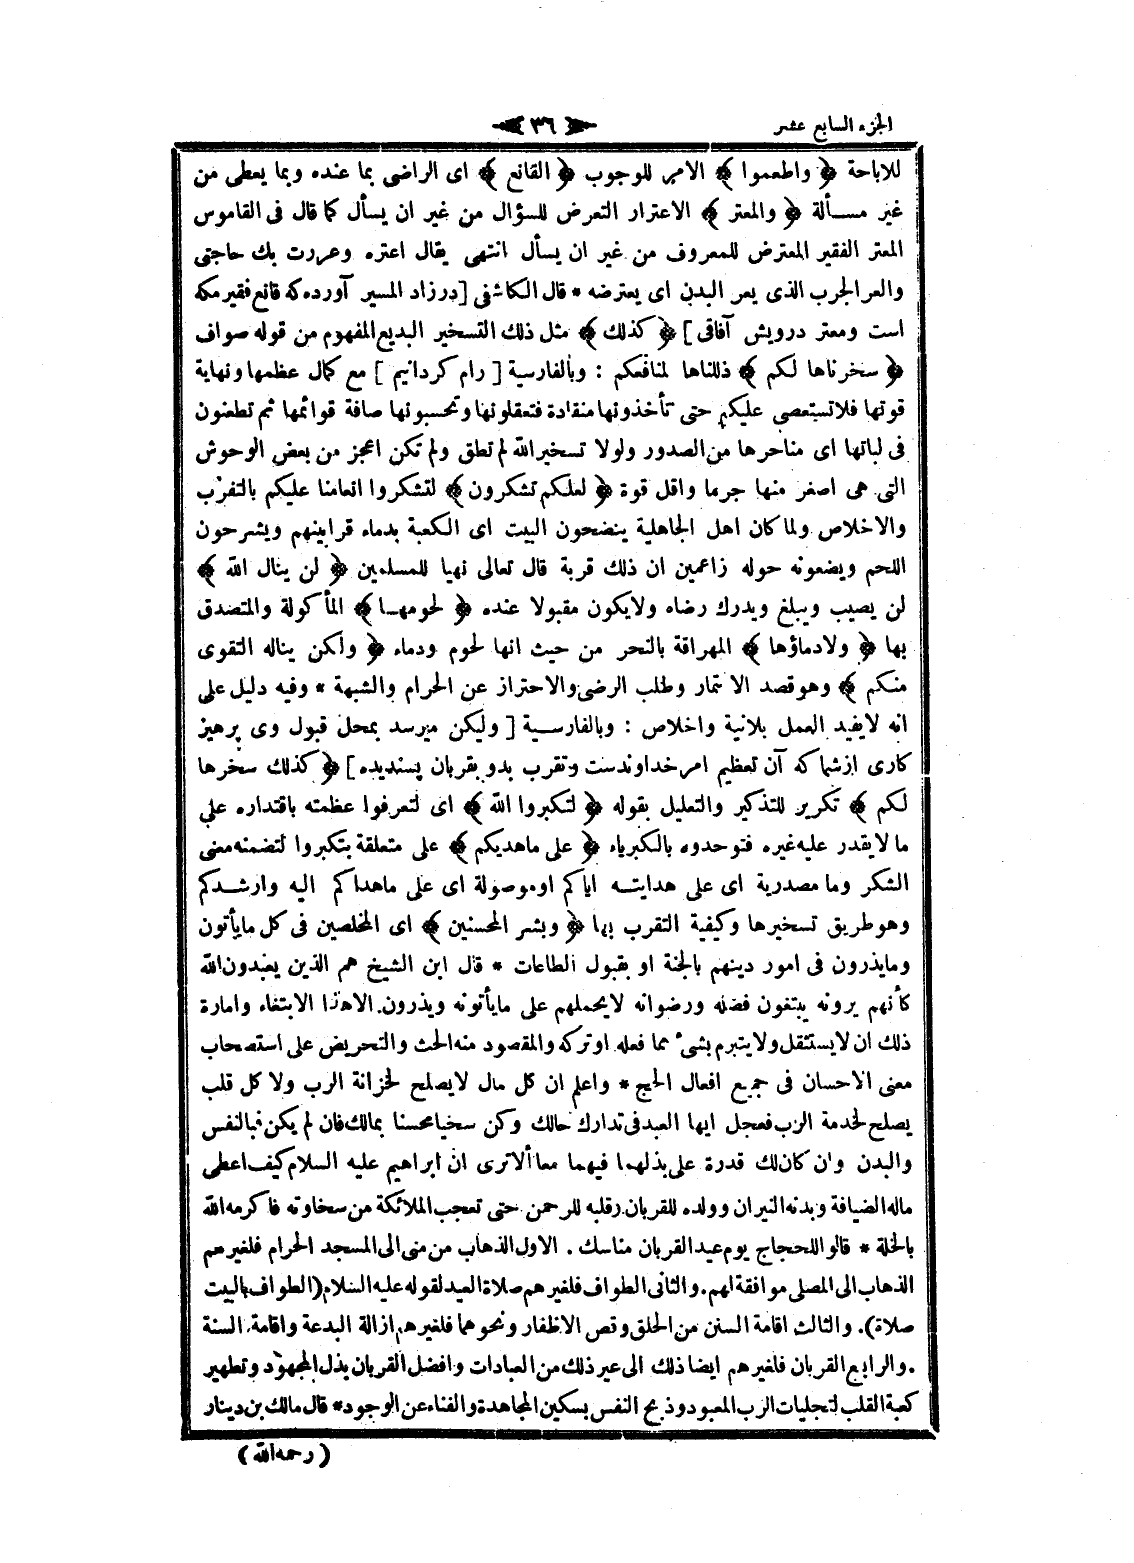 الجزء السابع عشر
﴿ ٣٦ ﴾
للاباحة ﴿ واطعموا ﴾ الامر للوجوب ﴿ القانع ﴾ اى الراضى بما عنده وبما يعطى من
غير مسألة ﴿ والمعتر ﴾ الاعترار التعرض للسؤال من غير ان يسأل كما قال فى القاموس
المعتر الفقير المعترض للمعروف من غير ان يسأل انتهى يقال اعتره وعررت بك حاجتى
والعر الجرب الذى يعر البدن اى يعترضه * قال الكاشفى [ درزاد المسير آورده كه قانع فقير مكه
است ومعتر درويش آفاقى ] ﴿ كذلك ﴾ مثل ذلك التسخير البديع المفهوم من قوله صواف
﴿ سخرناها لكم ﴾ ذللناها لمنافعكم : وبالفارسية [ رام كردانيم ] مع كمال عظمها ونهاية
قوتها فلاتستعصى عليكم حتى تأخذونها منقادة فتعقلونها وتحبسونها صافة قوائمها ثم تطعنون
فى لباتها اى مناحرها من الصدور ولولا تسخير الله لم تطق ولم تكن اعجز من بعض الوحوش
التى هى اصغر منها جرما واقل قوة ﴿ لعلكم تشكرون ﴾ لتشكروا انعامنا عليكم بالتقرب
والاخلاص ولما كان اهل الجاهلية ينضحون البيت اى الكعبة بدماء قرابينهم ويشرحون
اللحم ويضعونه حوله زاعمين ان ذلك قربة قال تعالى نهيا للمسلمين ﴿ لن ينال الله ﴾
لن يصيب ويبلغ ويدرك رضاه ولايكون مقبولا عنده ﴿ لحومها ﴾ المأكولة والمتصدق
بها ﴿ ولادماؤها ﴾ المهراقة بالنحر من حيث انها لحوم ودماء ﴿ ولكن يناله التقوى
منكم ﴾ وهو قصد الائتمار وطلب الرضى والاحتراز عن الحرام والشبهة * وفيه دليل على
انه لايفيد العمل بلانية واخلاص : وبالفارسية [ وليكن ميرسد بمحل قبول وى پرهيز
كارى ازشما كه آن تعظيم امر خداوندست وتقرب بدو بقربان پسنديده ] ﴿ كذلك سخرها
لكم ﴾ تكرير للتذكير والتعليل بقوله ﴿ لتكبروا الله ﴾ اى لتعرفوا عظمته باقتداره على
ما لايقدر عليه غيره فتوحدوه بالكبرياء ﴿ على ماهديكم ﴾ على متعلقة بتكبروا لتضمنه معنى
الشكر وما مصدرية اى على هدايته اياكم اوموصولة اى على ماهداكم اليه وارشدكم
وهو طريق تسخيرها وكيفية التقرب بها ﴿ وبشر المحسنين ﴾ اى المخلصين فى كل مايأتون
ومايذرون فى امور دينهم بالجنة او بقبول الطاعات * قال ابن الشيخ هم الذين يعبدون الله
كأنهم يرونه يبتغون فضله ورضوانه لايحملهم على مايأتونه ويذرون الاهذا الابتغاء وامارة
ذلك ان لايستثقل ولايتبرم بشىء مما فعله اوتركه والمقصود منه الحث والتحريض على استصحاب
معنى الاحسان فى جميع افعال الحج * واعلم ان كل مال لايصلح لخزانة الرب ولا كل قلب
يصلح لخدمة الرب فعجل ايها العبد فى تدارك حالك وكن سخيا محسنا بمالك فان لم يكن فبالنفس
والبدن وان كان لك قدرة على بذلهما فيهما معا ألاترى ان ابراهيم عليه السلام كيف اعطى
ماله الضيافة وبدنه النيران وولده للقربان وقلبه للرحمن حتى تعجب الملائكة من سخاوته فاكرمه الله
بالخلة * قالوا للحجاج يوم عيد القربان مناسك . الاول الذهاب من منى الى المسجد الحرام فلغيرهم
الذهاب الى المصلى موافقة لهم . والثانى الطواف فلغيرهم صلاة العيد لقوله عليه السلام (الطواف بالبيت
صلاة) . والثالث اقامة السنن من الحلق وقص الاظفار ونحوهما فلغيرهم ازالة البدعة واقامة السنة
. والرابع القربان فلغيرهم ايضا ذلك الى غير ذلك من العبادات وافضل القربان بذل المجهود وتطهير
كعبة القلب لتجليات الرب المعبود وذبح النفس بسكين المجاهدة والفناء عن الوجود * قال مالك بن دينار
( رحمه الله )